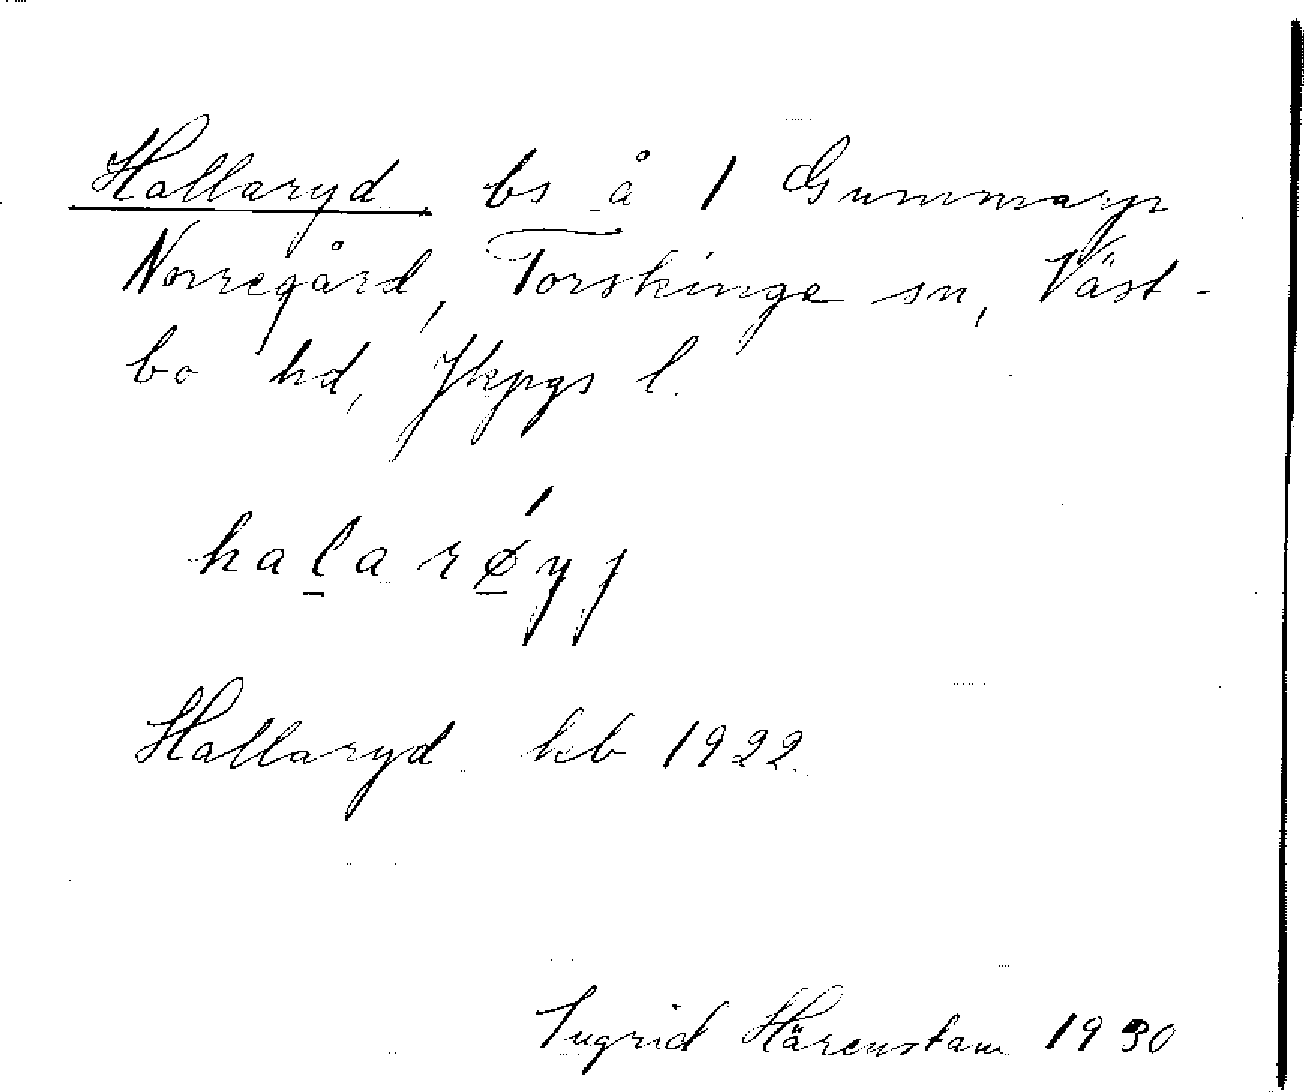 Hallaryd bs å 1 Gummarp
Norregård, Torskinge sn, Väst-
bo hd, Jkpgs l.
hal̲arǿ̲yj
Hallaryd kb 1922.
Ingrid Härenstam 1930